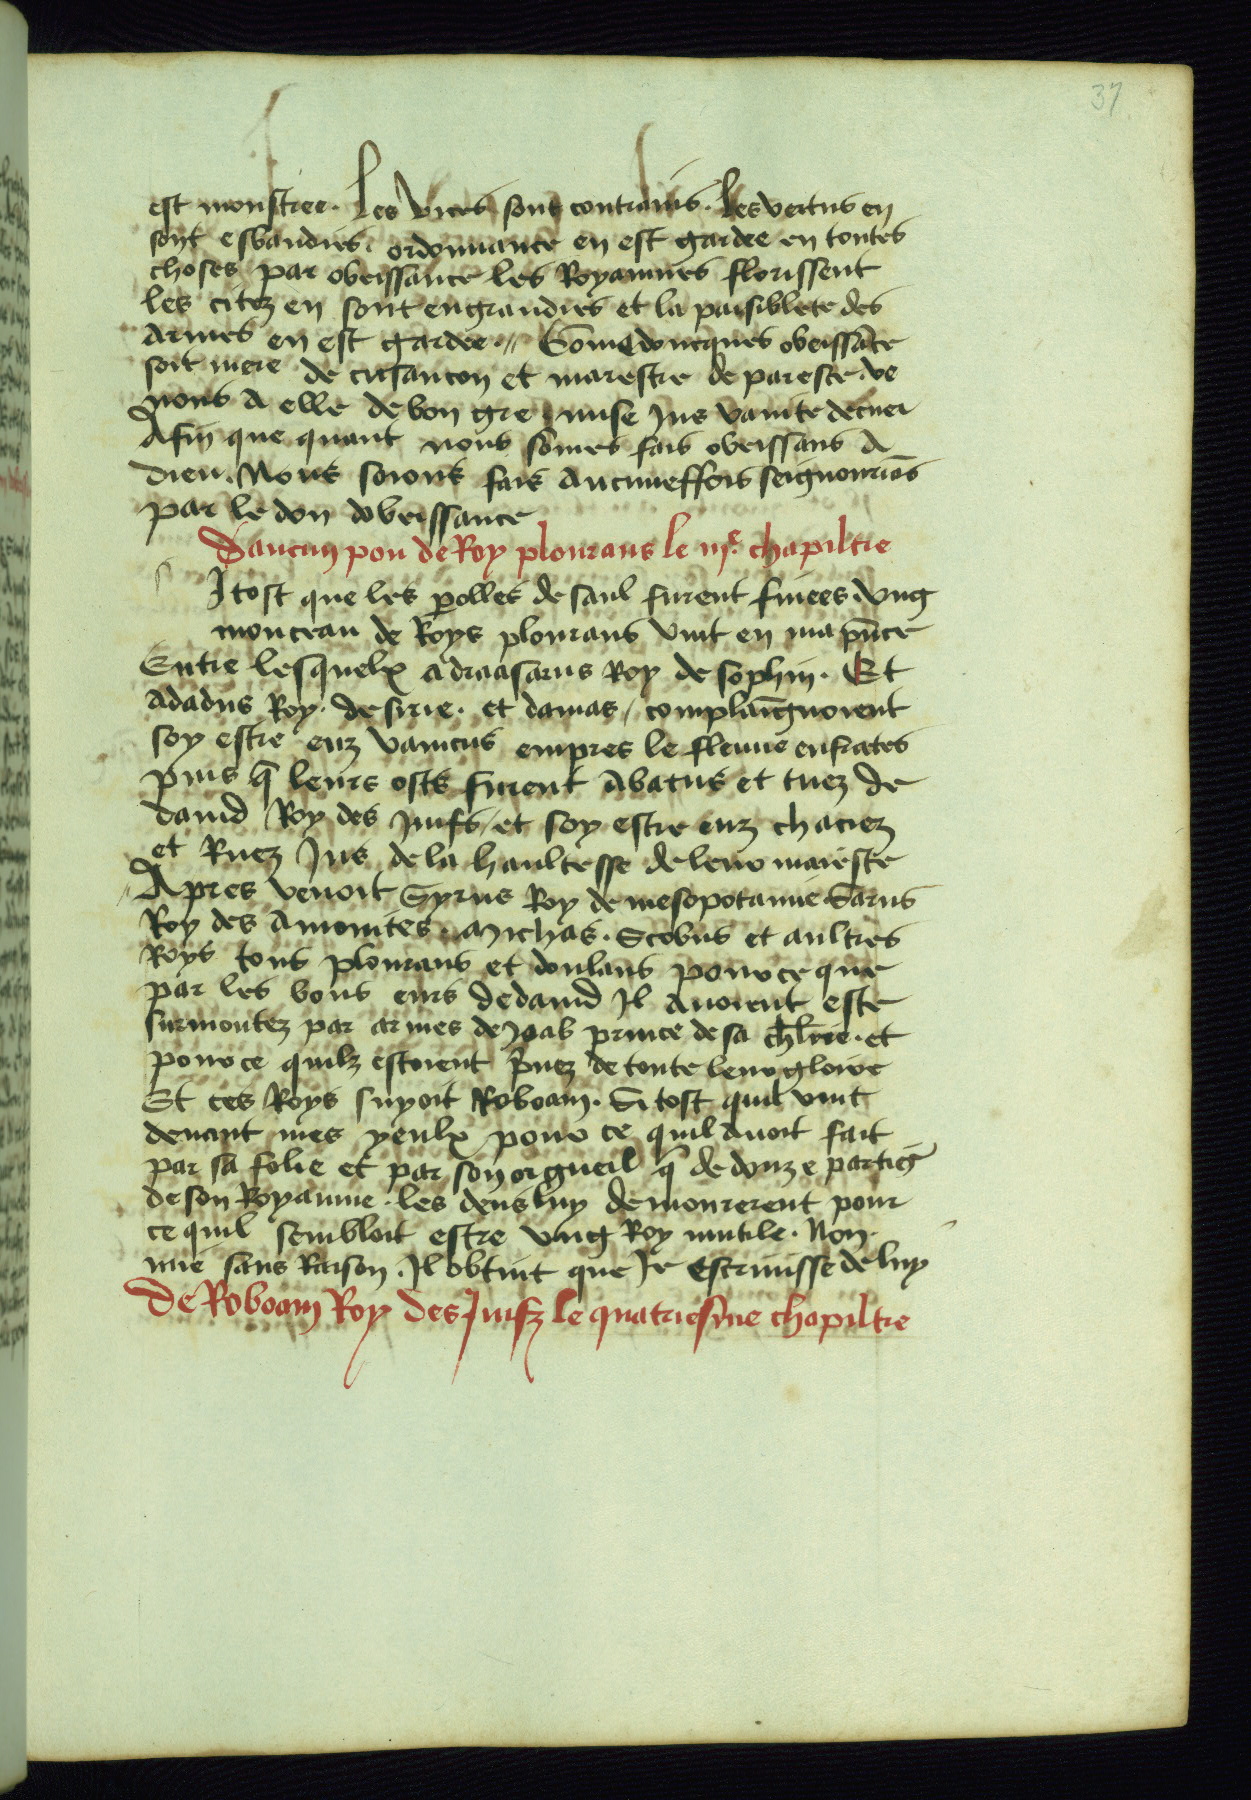 37
est monstree. Les vices sont contrains. Les vertus en
sont esbaudies. ordonnance en est gardee en toutes
choses par obeissance les Royaumes florissent
les citez en sont engrandies et la paisiblete des
armes en est gardee. // Come doncques obeissāce
soit mere de cusancon et marestre de paresce. ve
nons a elle de bon gre mise jus vanite de cuer
Afin que quant nous somes fais obeissans a
dieu. Nous soions fais aucuneffois
par le don dobeissance
Daucun pou de Roy plourans le iije chapiltre
s Itost que les polles de saul furent finees. Ung
monceau de Roys plourans vint en ma pn̄ce
Entre lesquelx adraasarus Roy de sophin. Et
Adadus Roy. de sirie. et damas / complaingnoient
soy estre eulz vaincus empres le fleuve eufrates
puis q̄ leurs osts furent abatus et tuez de
david Roy des juifs / et soy estre eulz chaciez
et Ruez jus de la haultesse de leur maieste
// Apres venoit Syrus Roy de mesopotamie Sarus
Roy des amonites. Michas. Scobus et aultres
Roys tous plourans et doulans pour ce que
par les bons eurs de david Il avoient este
surmontez par armes de Joab prince de sa chl̄rie. et
pour ce quilz estoient p̄vez de toute leur gloire
Et ces Roys suyoit Roboam. Si tost quil vint
devant mes yeulx pour ce quil avoit fait
par sa folie et par son orgueil q̄ de douze parties
de son Royaume. les deus luy demourerent pour
ce quil sembloit estre ung Roy inutile. Non
mie sans Raison. Il obtint que Je escrivisse de luy
De Roboam Roy des Juifz le quatriesme chapiltre